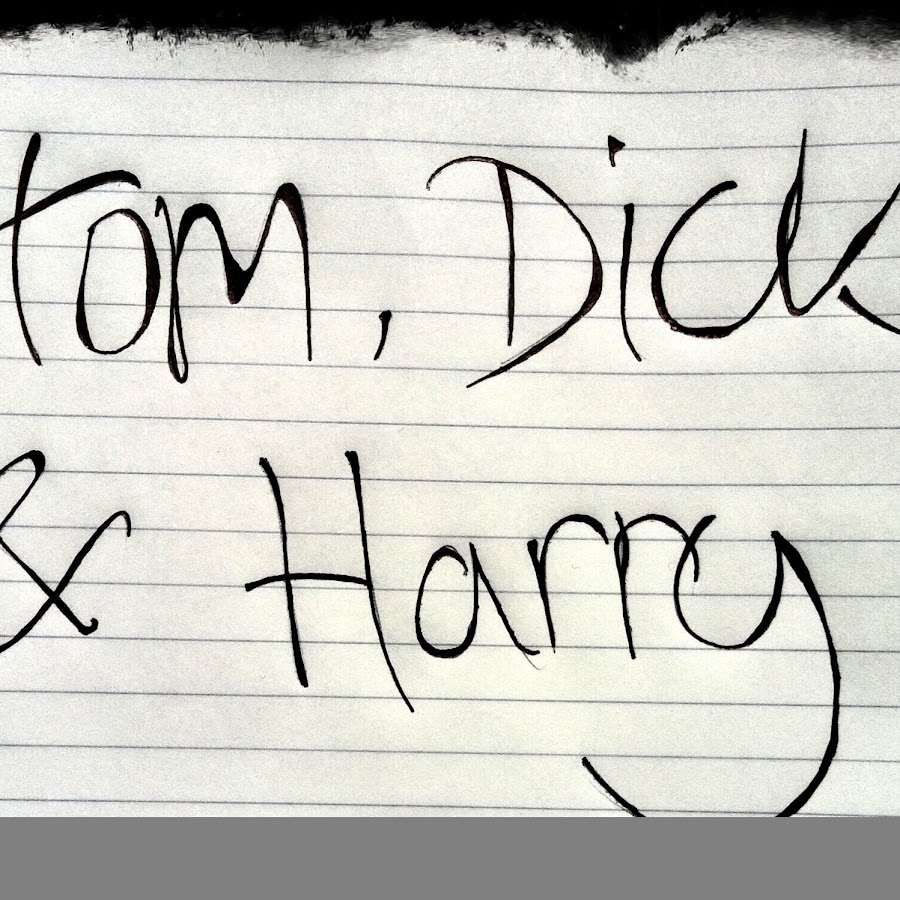 tom, Dick
& Harry